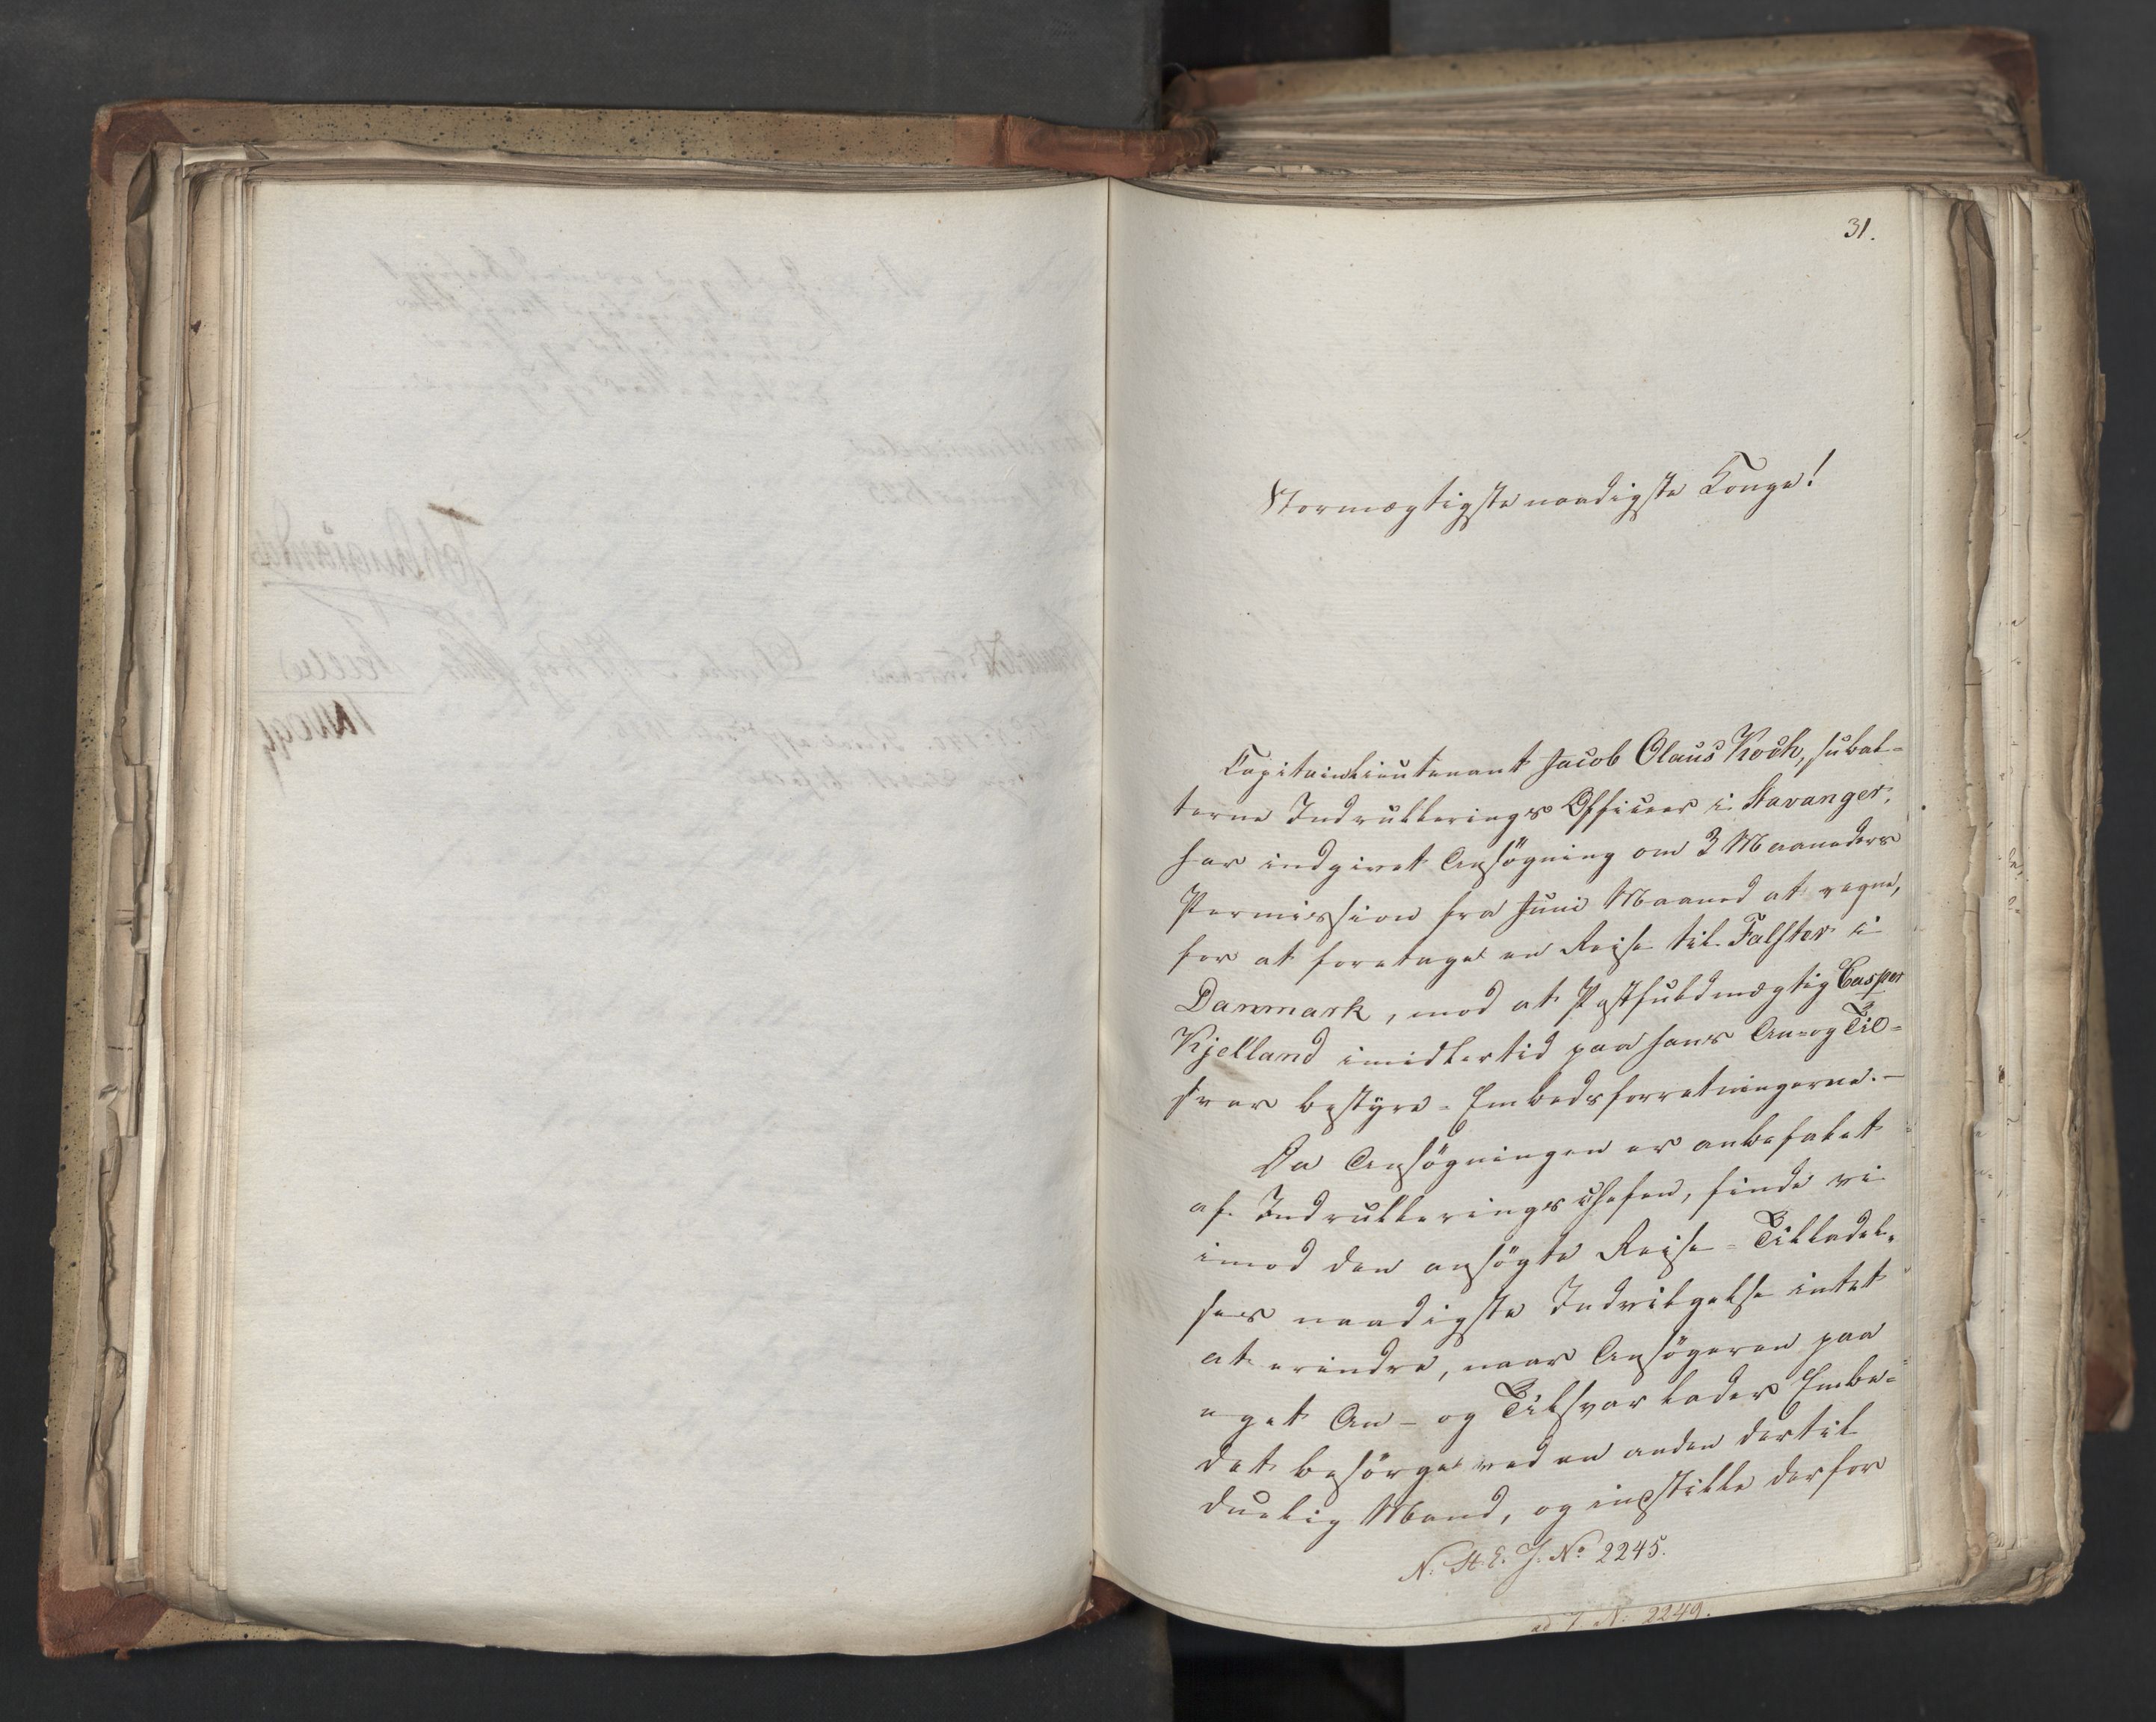 31.
Stormægtigste naadigste Konge!
Capitainlieutenant Jacob Olaus Koch, subal-
terne Indrullerings Officeer i Stavanger,
har indgivet Ansögning om 3 Maaneders
Permission fra Juni Maaned at regne,
for at foretage en Reise til Falster i
Danmark, mod at Postfuldmægtig Casper
Kjelland imidlertid paa hans An- og Til-
svar bestyre Embedsforretningerne. -
Da Ansögningen er anbefalet
af Indrulleringschefen, finde vi
imod den ansögte Reise-Tilladel-
ses naadigste Indvilgelse intet
at erindre, naar Ansögeren paa
eget An- og Tilsvar lader Embe-
det besörge ved en anden dertil
duelig Mand, og indstille derfor
N. St. E. J. No 2245.
ad J. N: 2249.